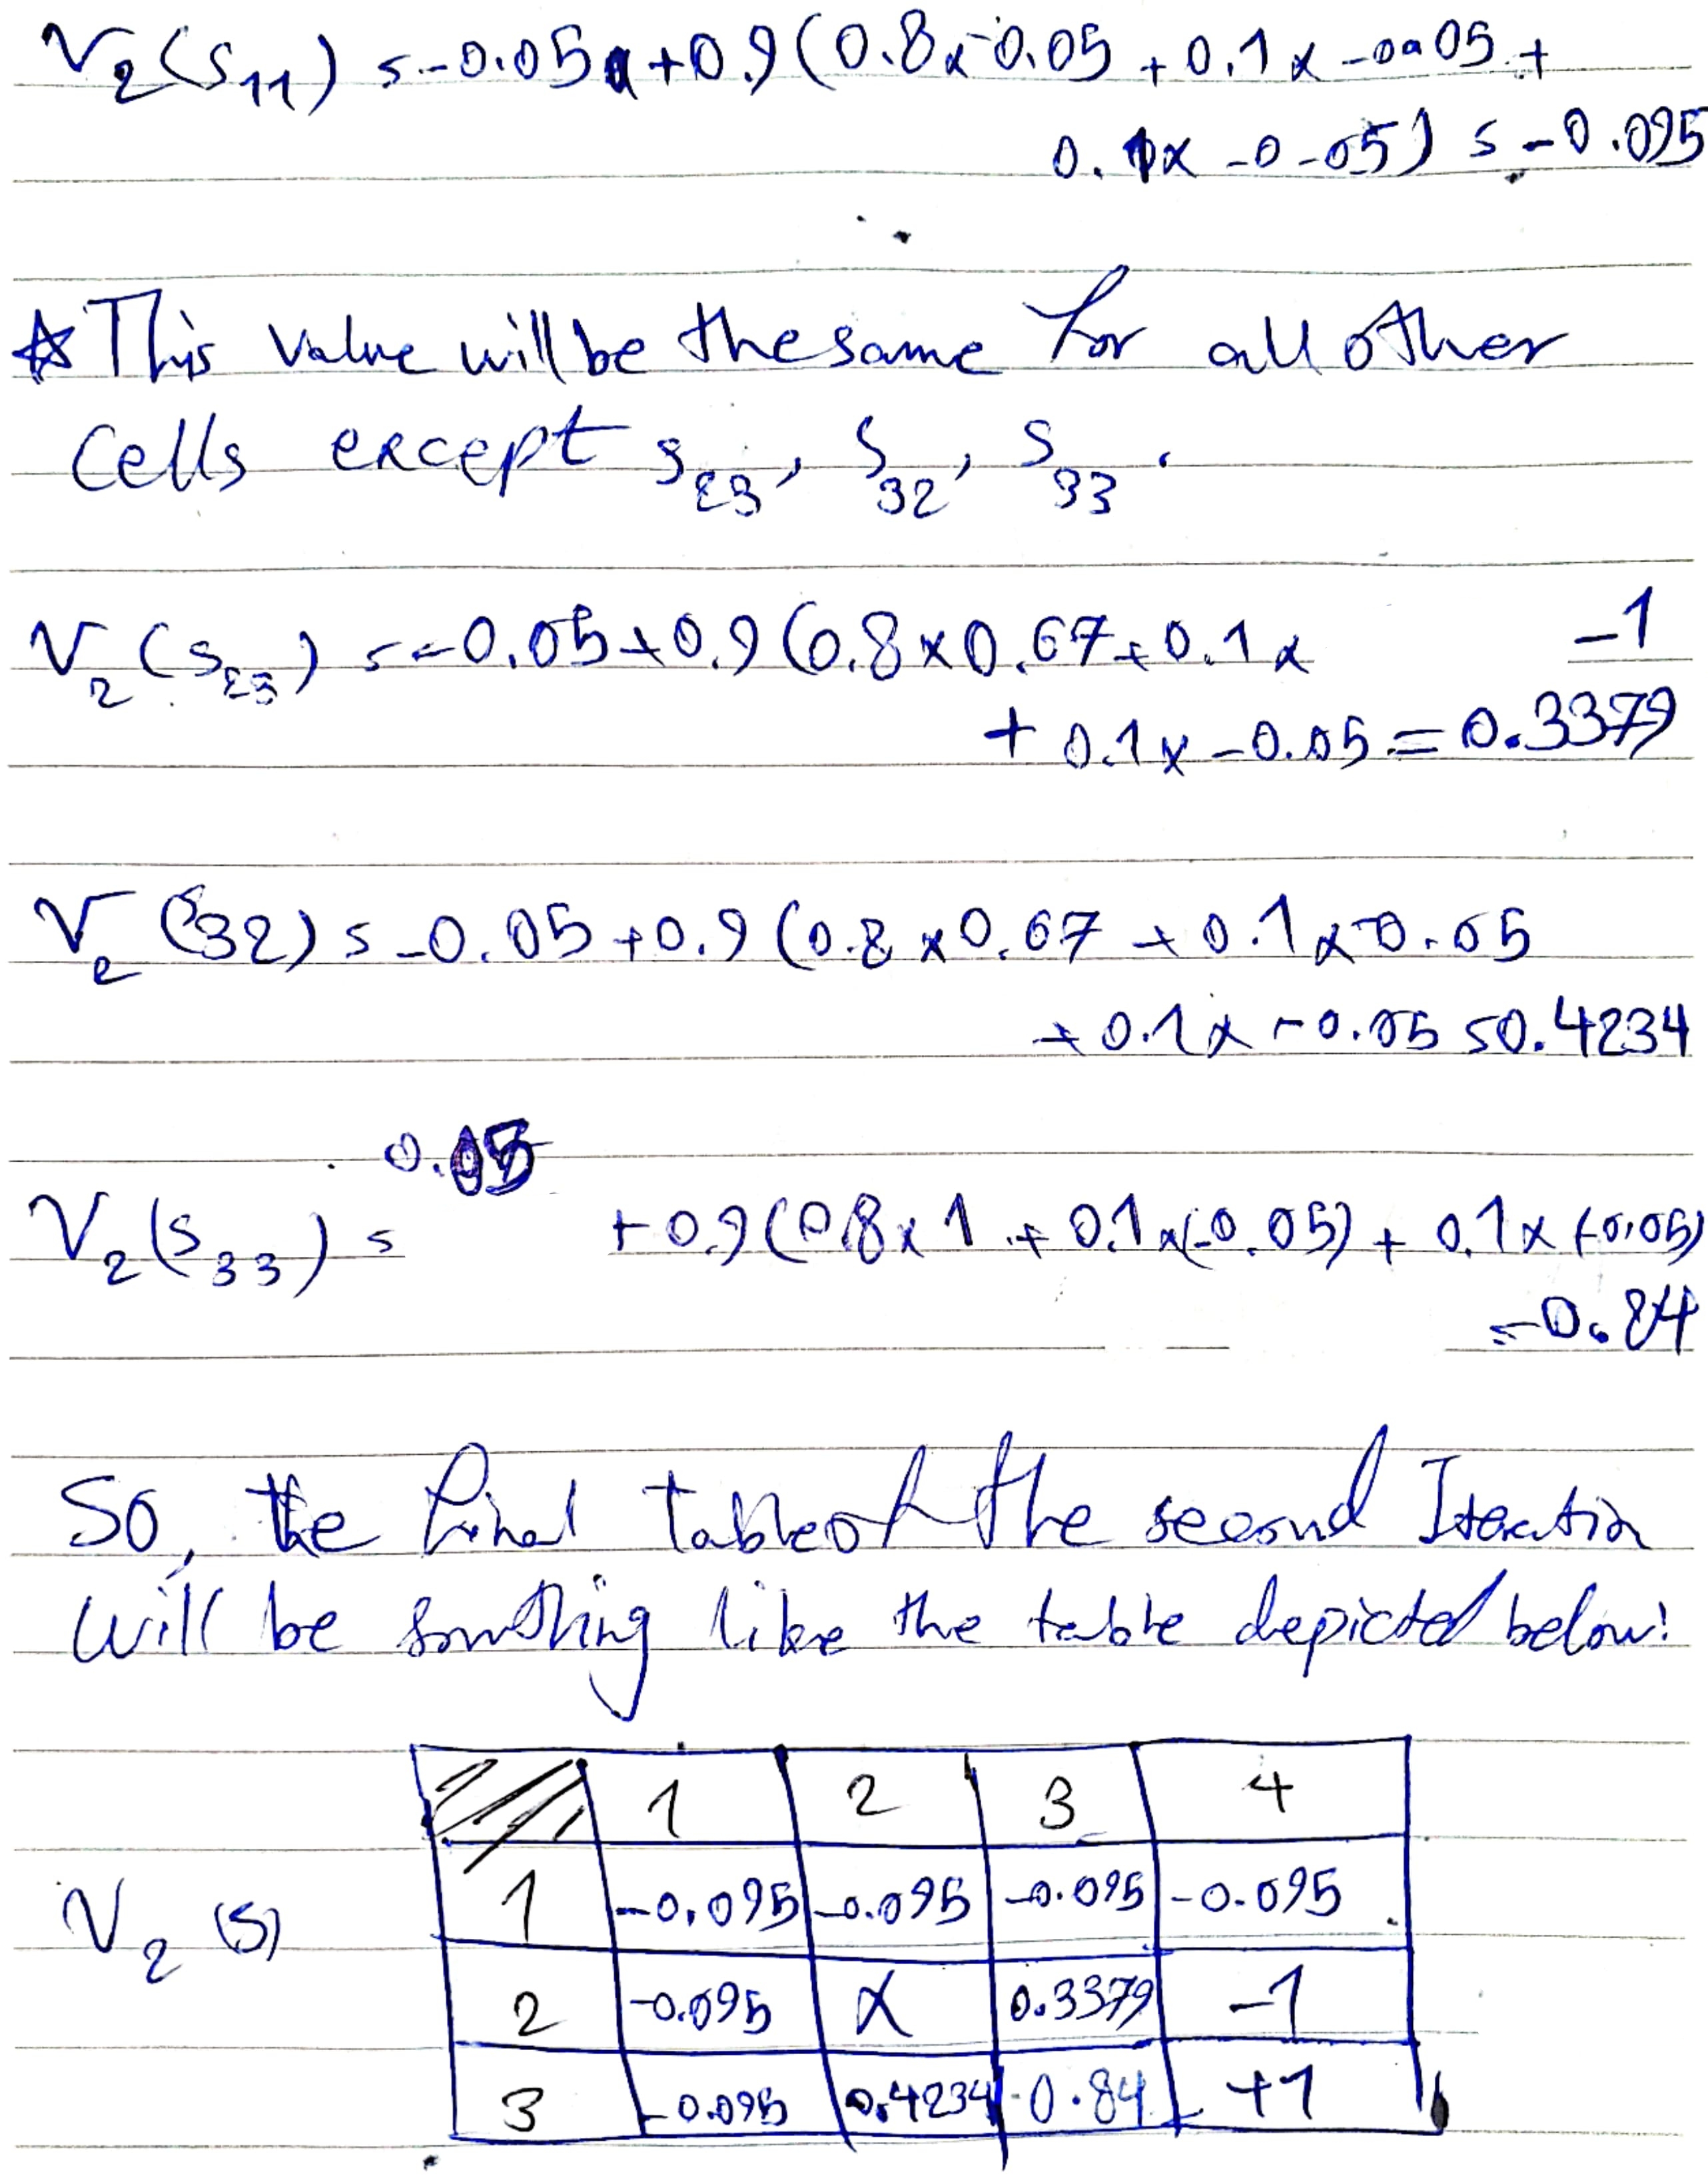 V₂(S₁₁) = -0.05 + 0.9 (0.8 x -0.05 + 0.1 x -0.05 +
0.1 x -0.05) = -0.095
☆ This value will be the same for all other
cells except S₂₃, S₃₂, S₃₃.
V₂(S₂₃) = -0.05 + 0.9 (0.8 x 0.67 + 0.1 x -1
+ 0.1 x -0.05 = 0.3379
V₂(S32) = -0.05 + 0.9 (0.8 x 0.67 + 0.1 x -0.05
+ 0.1 x -0.05 = 0.4234
0.05
V₂(S₃₃) = + 0.9 (0.8 x 1 + 0.1 x (-0.05) + 0.1 x (-0.05)
= 0.84
So, the final table of the second Iteration
will be somthing like the table depicted below:
1 2 3 4
1 -0.095 -0.095 -0.095 -0.095
V₂(S)
2 -0.095 X 0.3379 -1
3 -0.095 0.4234 0.84 +1